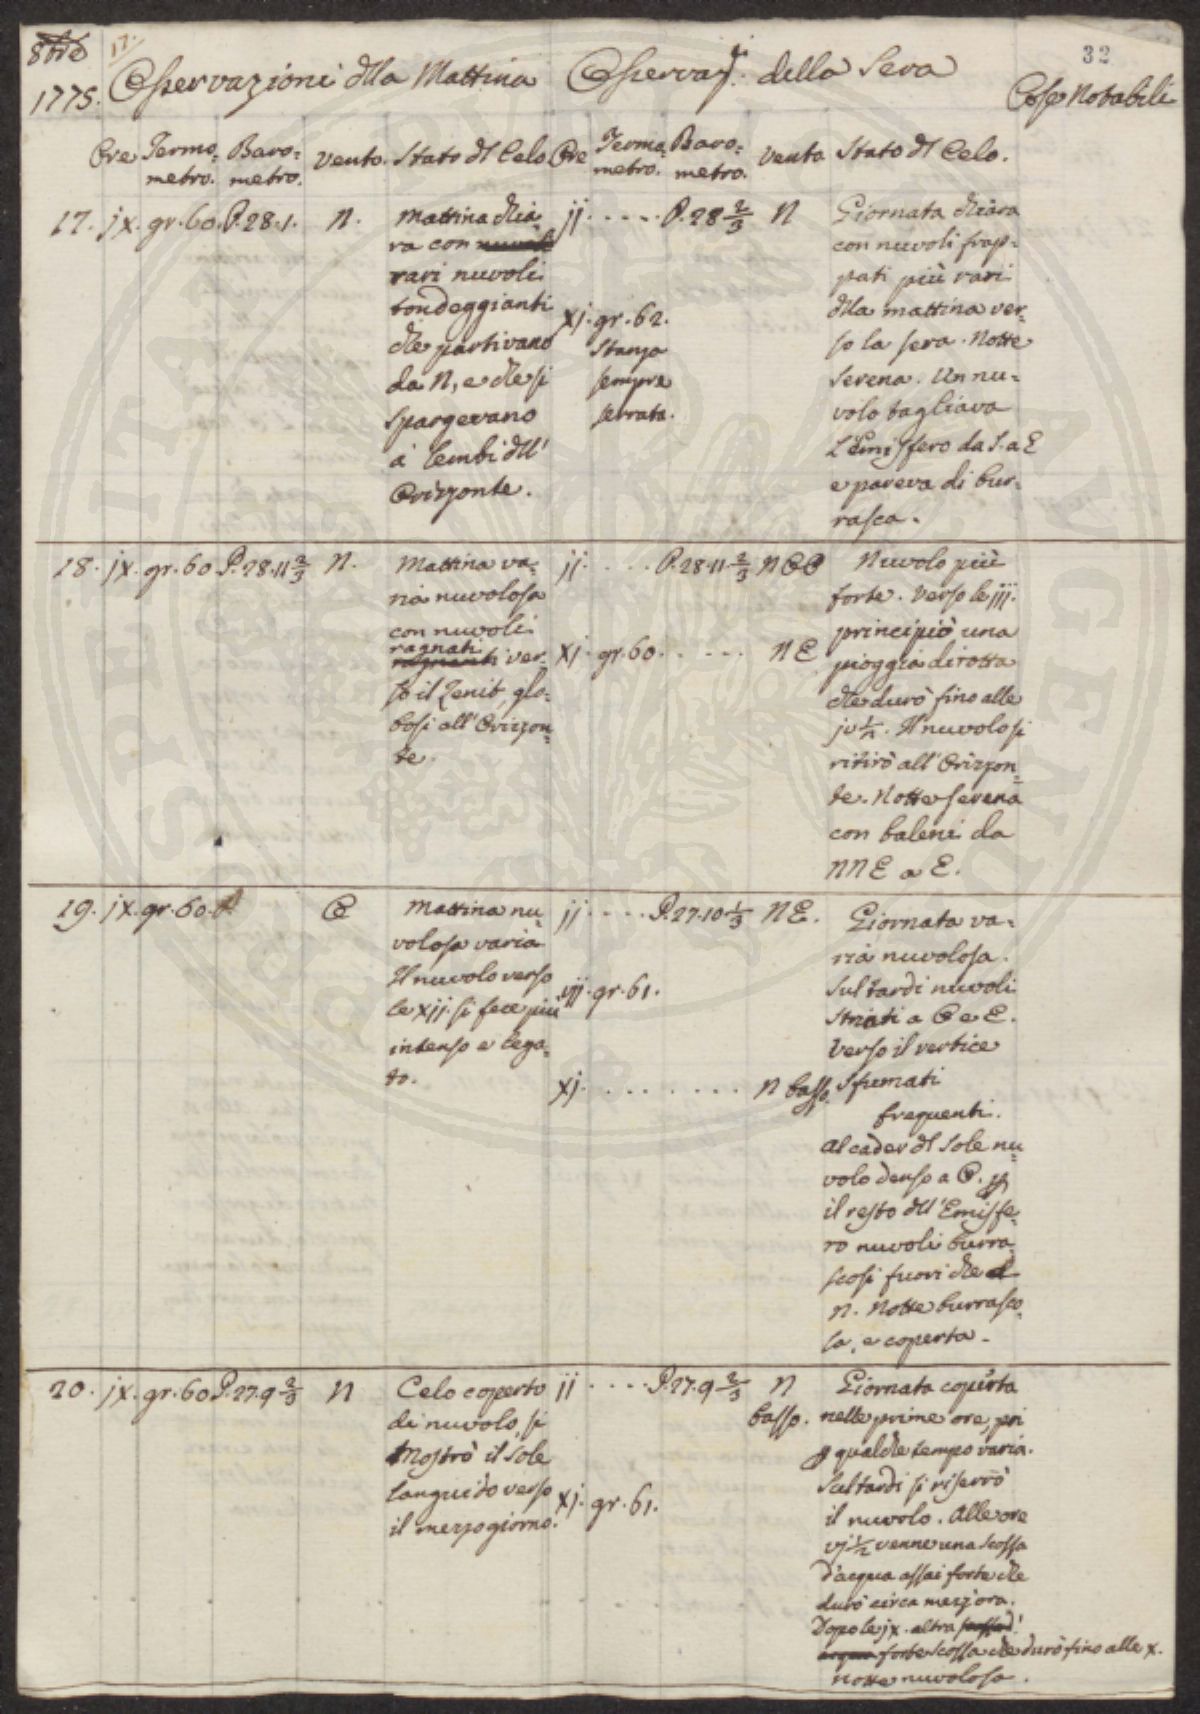 8bre
17.
32
1775.
Osservazioni dlla Mattina
Osservaz.i della Sera
Cose Notabili
Ore Termo= Baro= vento. Stato dl Celo
metro. metro.
Ore Termo= Baro= vento Stato dl Celo.
metro. metro.
17. jx. gr. 60. P. 28.1. N.
Mattina chia=
ra con nuvoli
rari nuvoli
tondeggianti
che partivano
da N, e che si
spargevano
a' lembi dll'
Orizzonte.
ij ..... P. 28 2/3 N
xj. gr. 62.
Stanza
sempre
serrata.
Giornata chiara
con nuvoli frap=
pati più rari
dlla mattina ver=
so la sera. Notte
serena. Un nu=
volo tagliava
l'Emisfero da S. a E
e pareva di bur=
rasca.
18. jx. gr. 60 P. 28.11 2/3 N.
Mattina va=
ria nuvolosa
con nuvoli
ragnati
ragnanti ver=
so il Zenit, glo=
bosi all'Orizon=
te.
ij. .... P. 28.11 2/3 N O O
xj. gr. 60. ..... N E
Nuvolo più
forte. Verso le iij.
principiò una
pioggia dirotta
che durò fino alle
jv 1/2. Il nuvolo si
ritirò all'Orizzon=
te. Notte serena
con baleni da
N N E a E.
19. jx. gr. 60. O
Mattina nu=
volosa varia
Il nuvolo verso
le xij. si fece più
intenso e lega=
to.
ij .... P. 27.10 1/3 N E.
vij. gr. 61.
xj. ........ N basso.
Giornata va=
ria nuvolosa.
Sul tardi nuvoli
striati a O e E.
Verso il vertice
sfumati
frequenti.
Al cader dl Sole nu=
volo denso a O. p
il resto dll'Emisfe=
ro nuvoli burra=
scosi fuori che
N. Notte burrasco=
sa, e coperta.
20. jx. gr. 60 P. 27.9 2/3 N
Celo coperto
di nuvolo, si
Mostrò il Sole
languido verso
il mezzogiorno.
ij .... P. 27.9 2/3 N
basso.
xj. gr. 61.
Giornata coperta
nelle prime ore, poi
p qualche tempo varia.
Sul tardi si riserrò
il nuvolo. Alle ore
vj 1/2 venne una scossa
d'acqua assai forte che
durò circa mezz'ora.
Dopo le jx. altra scossa d'
acqua forte scossa che durò fino alle x.
Notte nuvolosa.